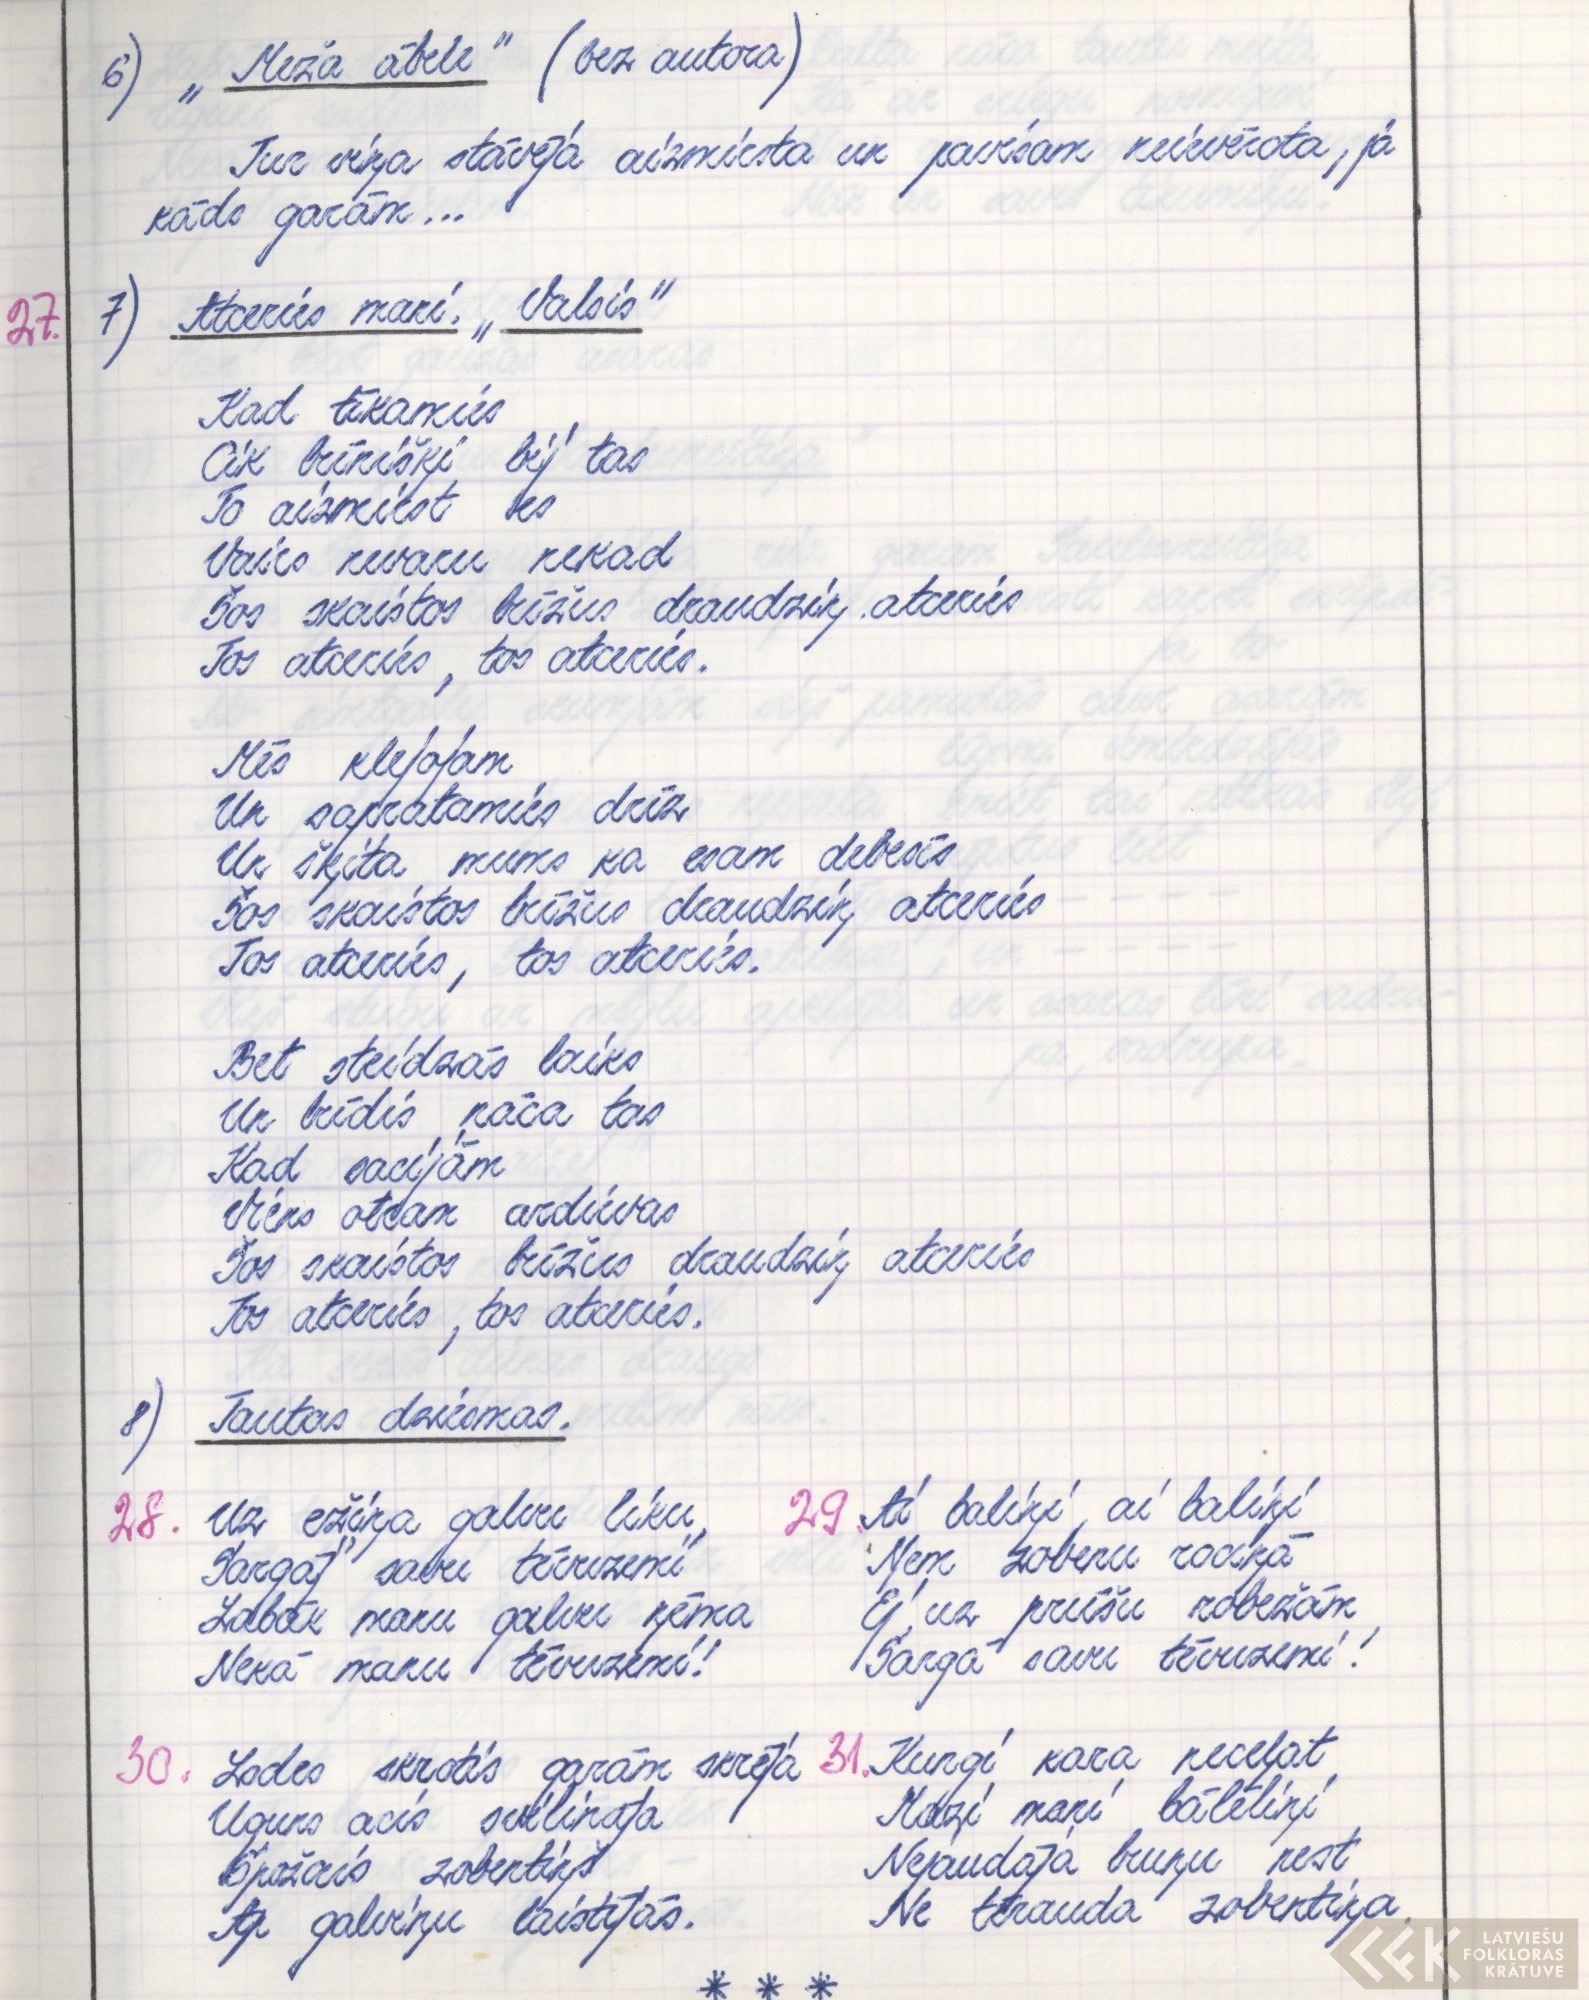 6) „Meža ābele" (bez autora)
Tur viņa stāvēja aizmirsta un pavisam neievērota, ja
kāds garām...
27. 7) Atceries mani. „Valsis"
Kad tikamies
Cik brīnišķi bij' tas
To aizmirst es
Vairs nevaru nekad
Šos skaistos brīžus draudziņ atceries
Tos atceries, tos atceries.
Mēs klejojam
Un sapratamies drīz
Un šķita mums ka esam debesīs
Šos skaistos brīžus draudziņ atceries
Tos atceries, tos atceries.
Bet steidzās laiks
Un brīdis nāca tas
Kad sacījām
Viens otram ardievas
Šos skaistos brīžus draudziņ atceries
Tos atceries, tos atceries.
8) Tautas dziesmas.
28. Uz ežiņa galvu liku,
Sargāj' savu tēvuzemi
Labāk manu galvu ņēma
Nekā manu tēvuzemi!
29. Ai baliņi, ai baliņi
Ņem zobenu rociņā
Ej uz prūšu robežām,
Sargā savu tēvuzemi!
30. Lodes skrotis garām skrēja
Uguns acis svilināja
Spožais zobentiņš
Ap galviņu laistījās.
31. Kungi kara neceļat,
Mazi mani bāleliņi
Nejaudāja bruņu nest
Ne tērauda zobentiņa.
* * *
LATVIEŠU
FOLKLORAS
KRĀTUVE